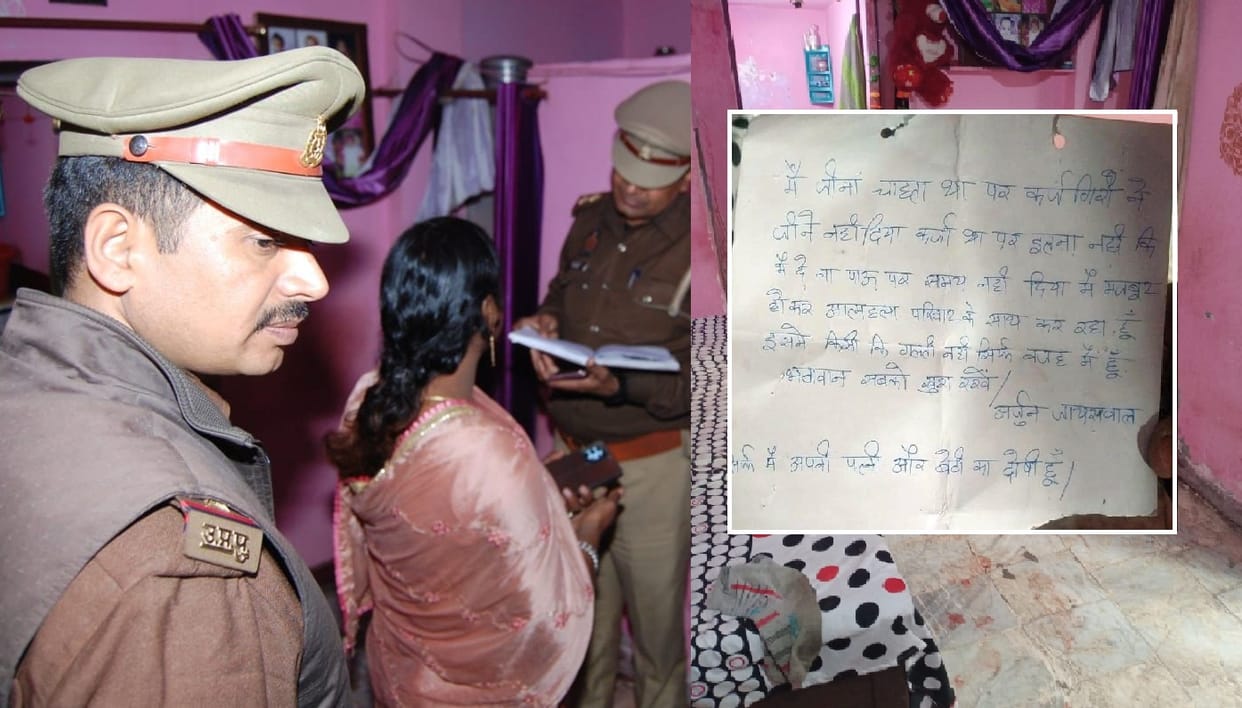 उ0प्र0पु0
मैं जीनां चाहता था पर कर्ज गिरों ने
जीने नहीं दिया कर्जा था पर इतना नहीं कि
मैं दे ना पाऊ पर समय नहीं दिया मैं मजबुर
होकर आत्महत्या परिवार के साथ कर रहा हूँ
इसमे किसी कि गल्ती नहीं सिर्फ वजह मैं हूँ.
भगवान सबको खुश रखें/
अर्जुन जायसवाल
मैं अपनी पत्नी और बेटी का दोषी हूँ/